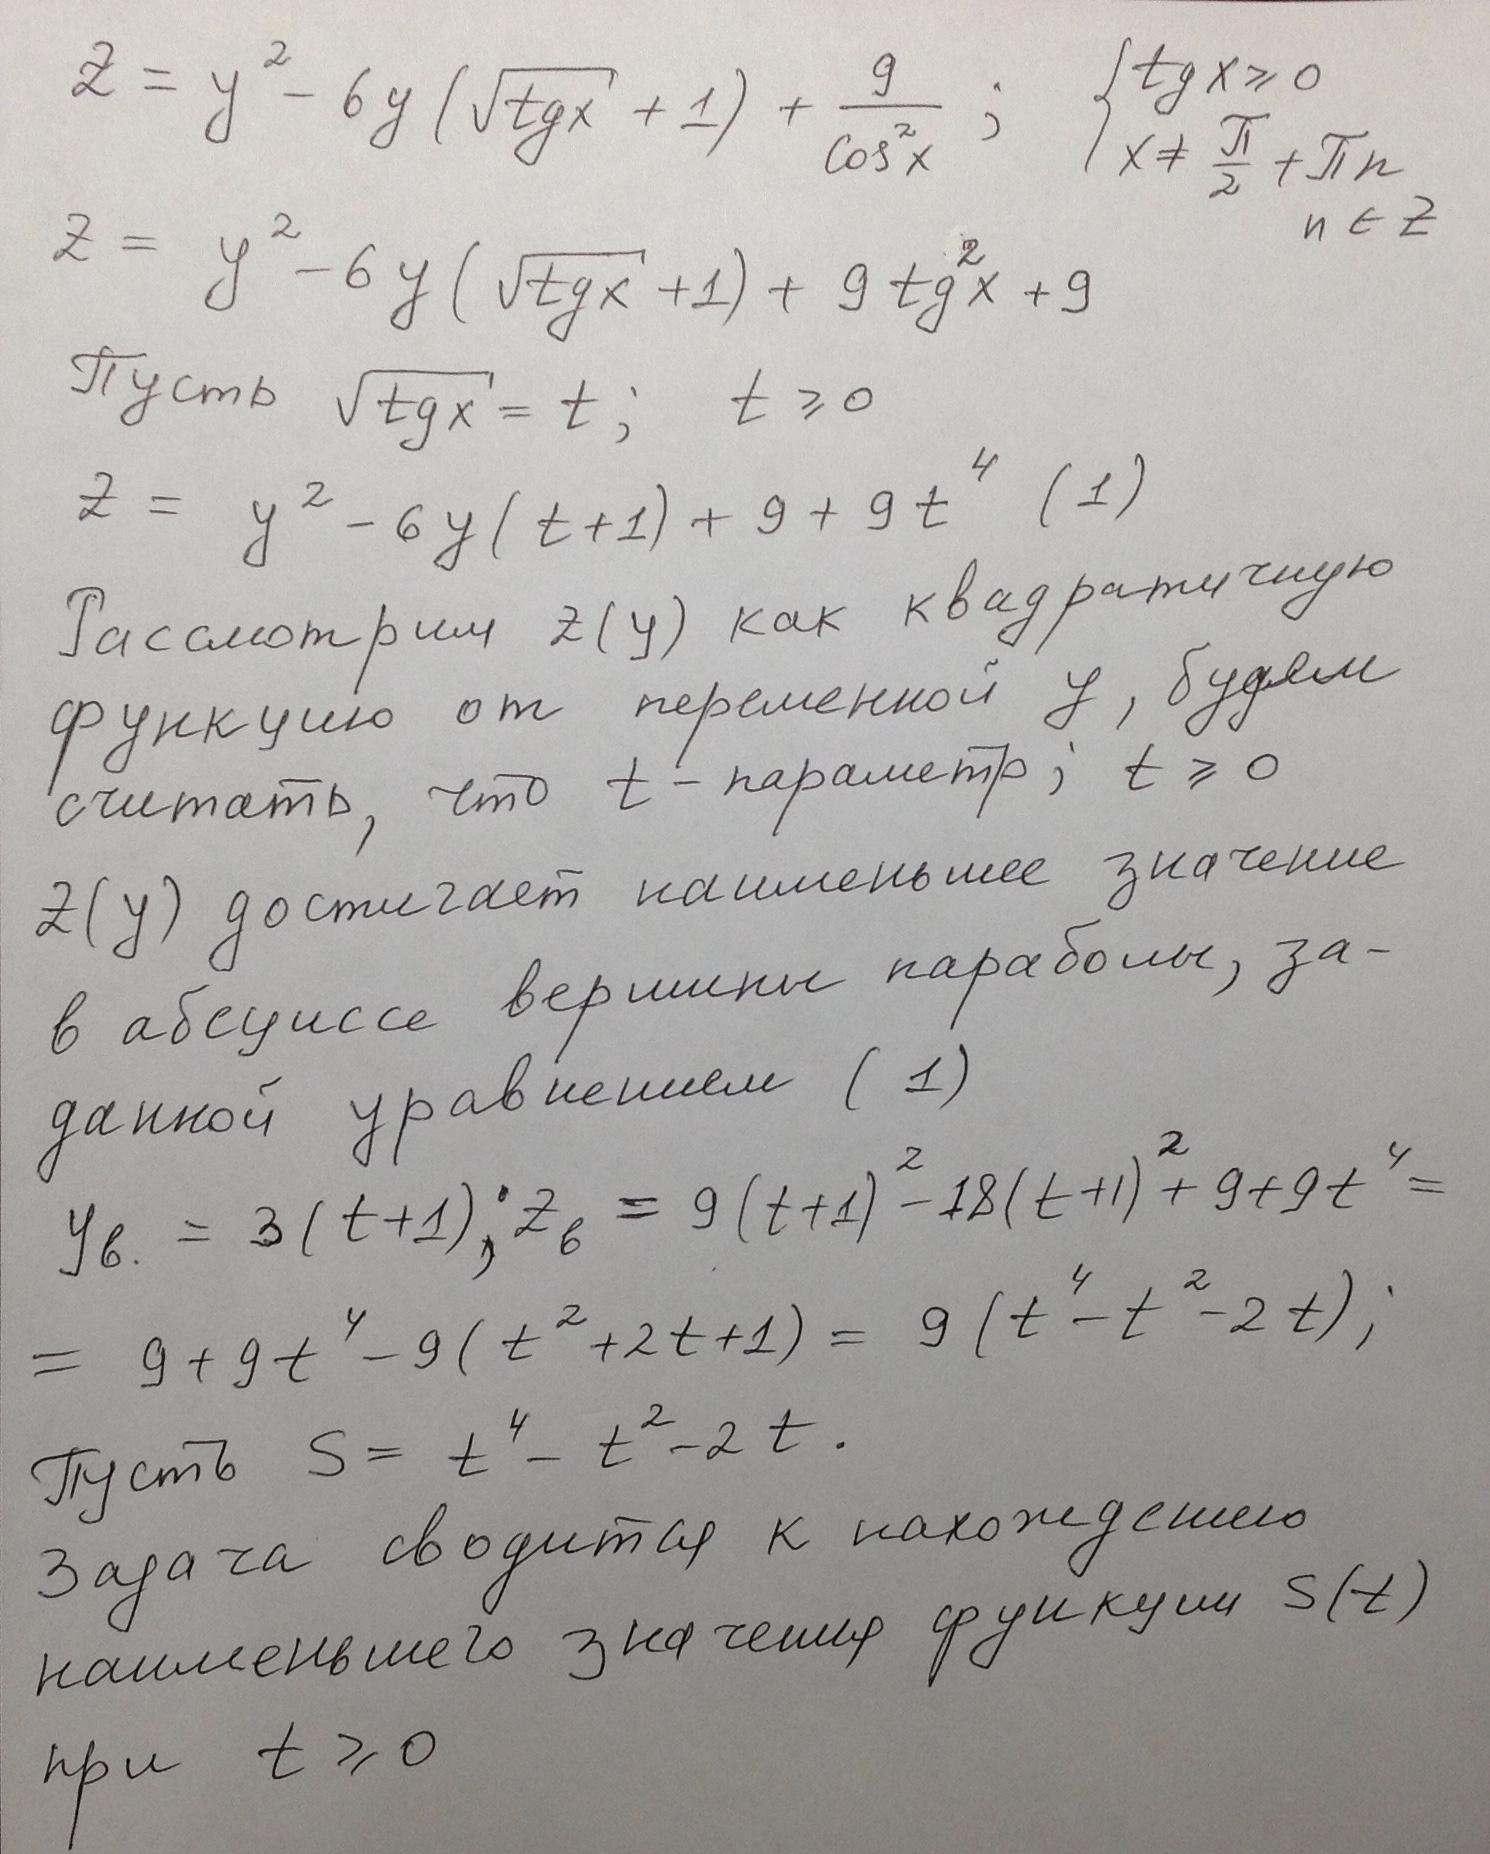 z = y² - 6y(√tgx + 1) + 9/cos²x ; { tgx ≥ 0
x ≠ π/2 + πn
n ∈ Z
z = y² - 6y(√tgx + 1) + 9tg²x + 9
Пусть √tgx = t; t ≥ 0
z = y² - 6y(t+1) + 9 + 9t⁴ (1)
Рассмотрим z(y) как квадратичную
функцию от переменной y, будем
считать, что t - параметр; t ≥ 0
z(y) достигает наименьшее значение
в абсциссе вершины параболы, за-
данной уравнением (1)
yв. = 3(t+1); zв = 9(t+1)² - 18(t+1)² + 9 + 9t⁴ =
= 9 + 9t⁴ - 9(t² + 2t + 1) = 9(t⁴ - t² - 2t);
Пусть S = t⁴ - t² - 2t.
Задача сводится к нахождению
наименьшего значения функции S(t)
при t ≥ 0